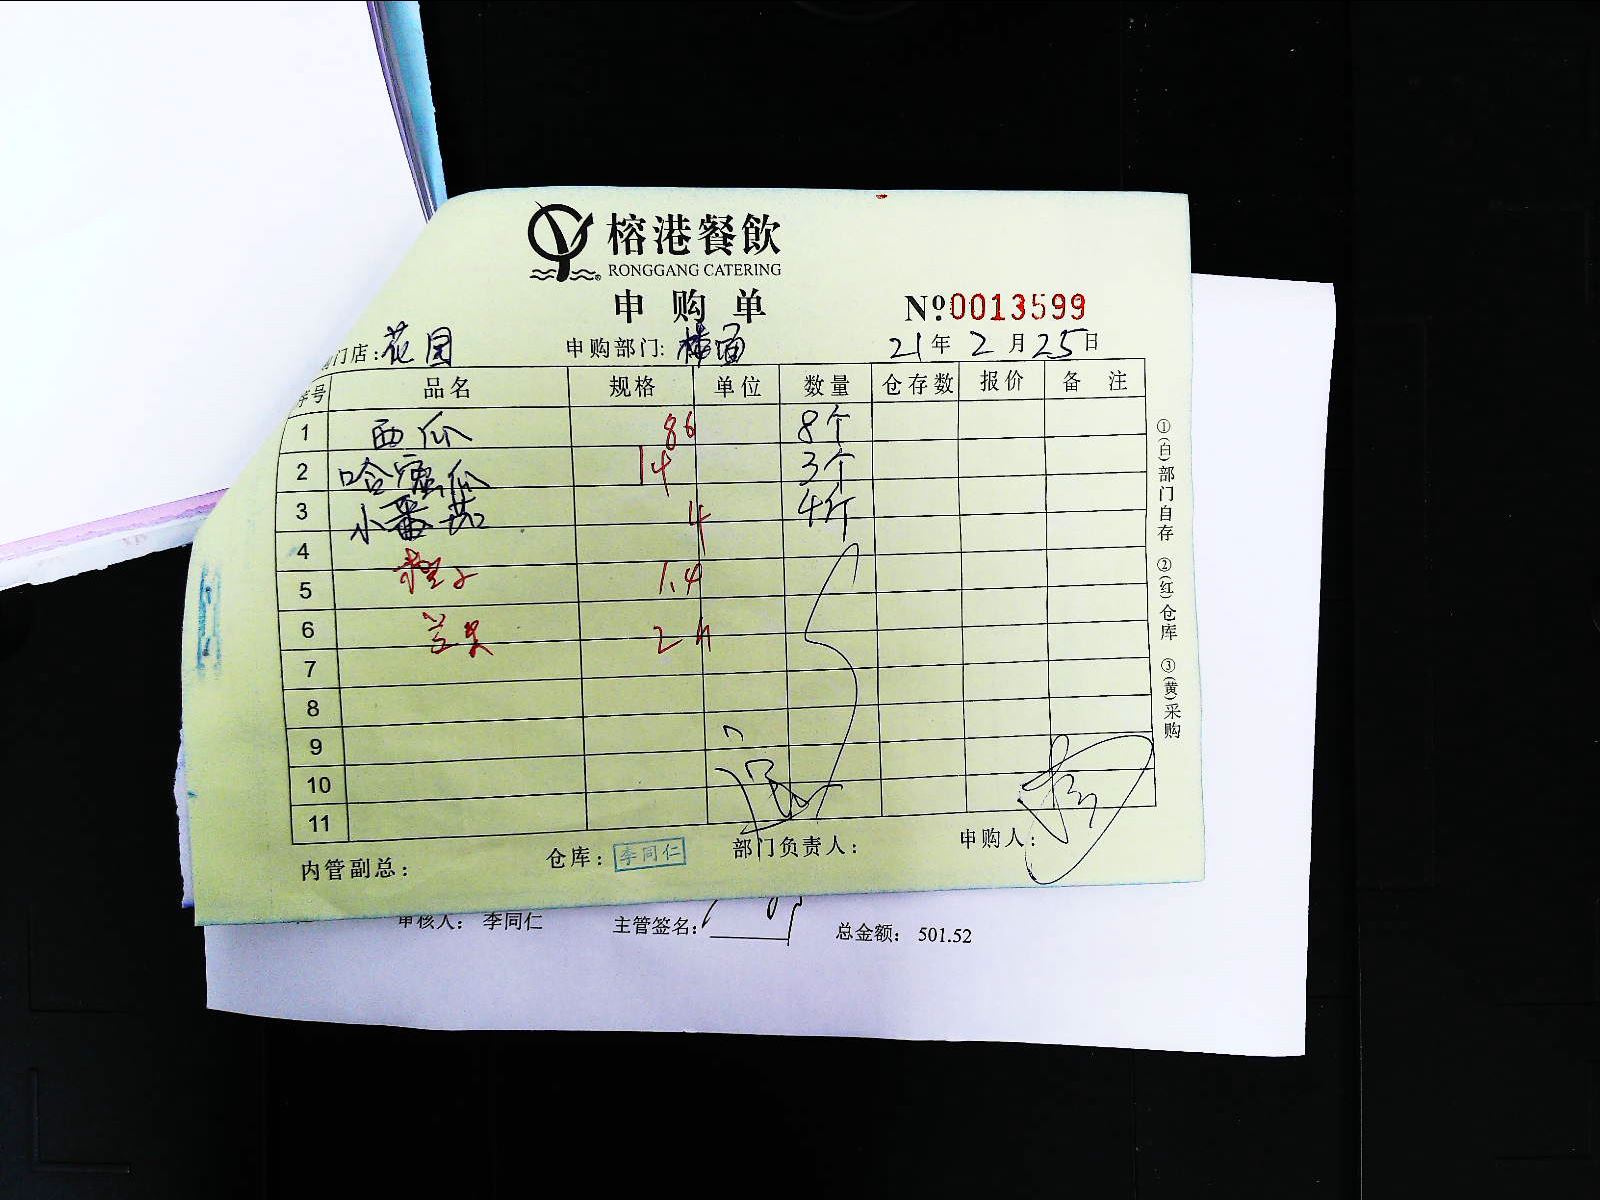 榕港餐飲
RONGGANG CATERING
申购单
№0013599
门店:花园 申购部门:楼面 21年2月25日
序号 品名 规格 单位 数量 仓存数 报价 备注
1 西瓜 86 8个
2 哈密瓜 14 3个
3 小番茄 4 4斤
4
5 橙子 1.4
6 2
7
8
9
10
11
①(白)部门自存 ②(红)仓库 ③(黄)采购
内管副总: 仓库:李同仁 部门负责人: 申购人:
审核人: 李同仁 主管签名: 总金额: 501.52